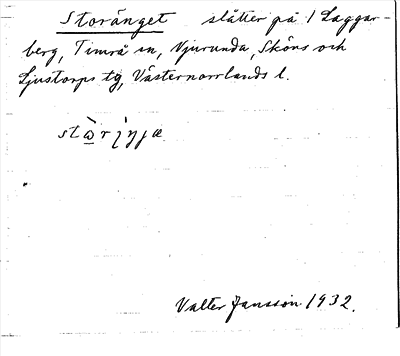 Storänget slåtter på 1 Laggar-
berg, Timrå sn, Njurunda, Sköns och
Ljustorps tg, Västernorrlands l.
Valter Jansson 1932.